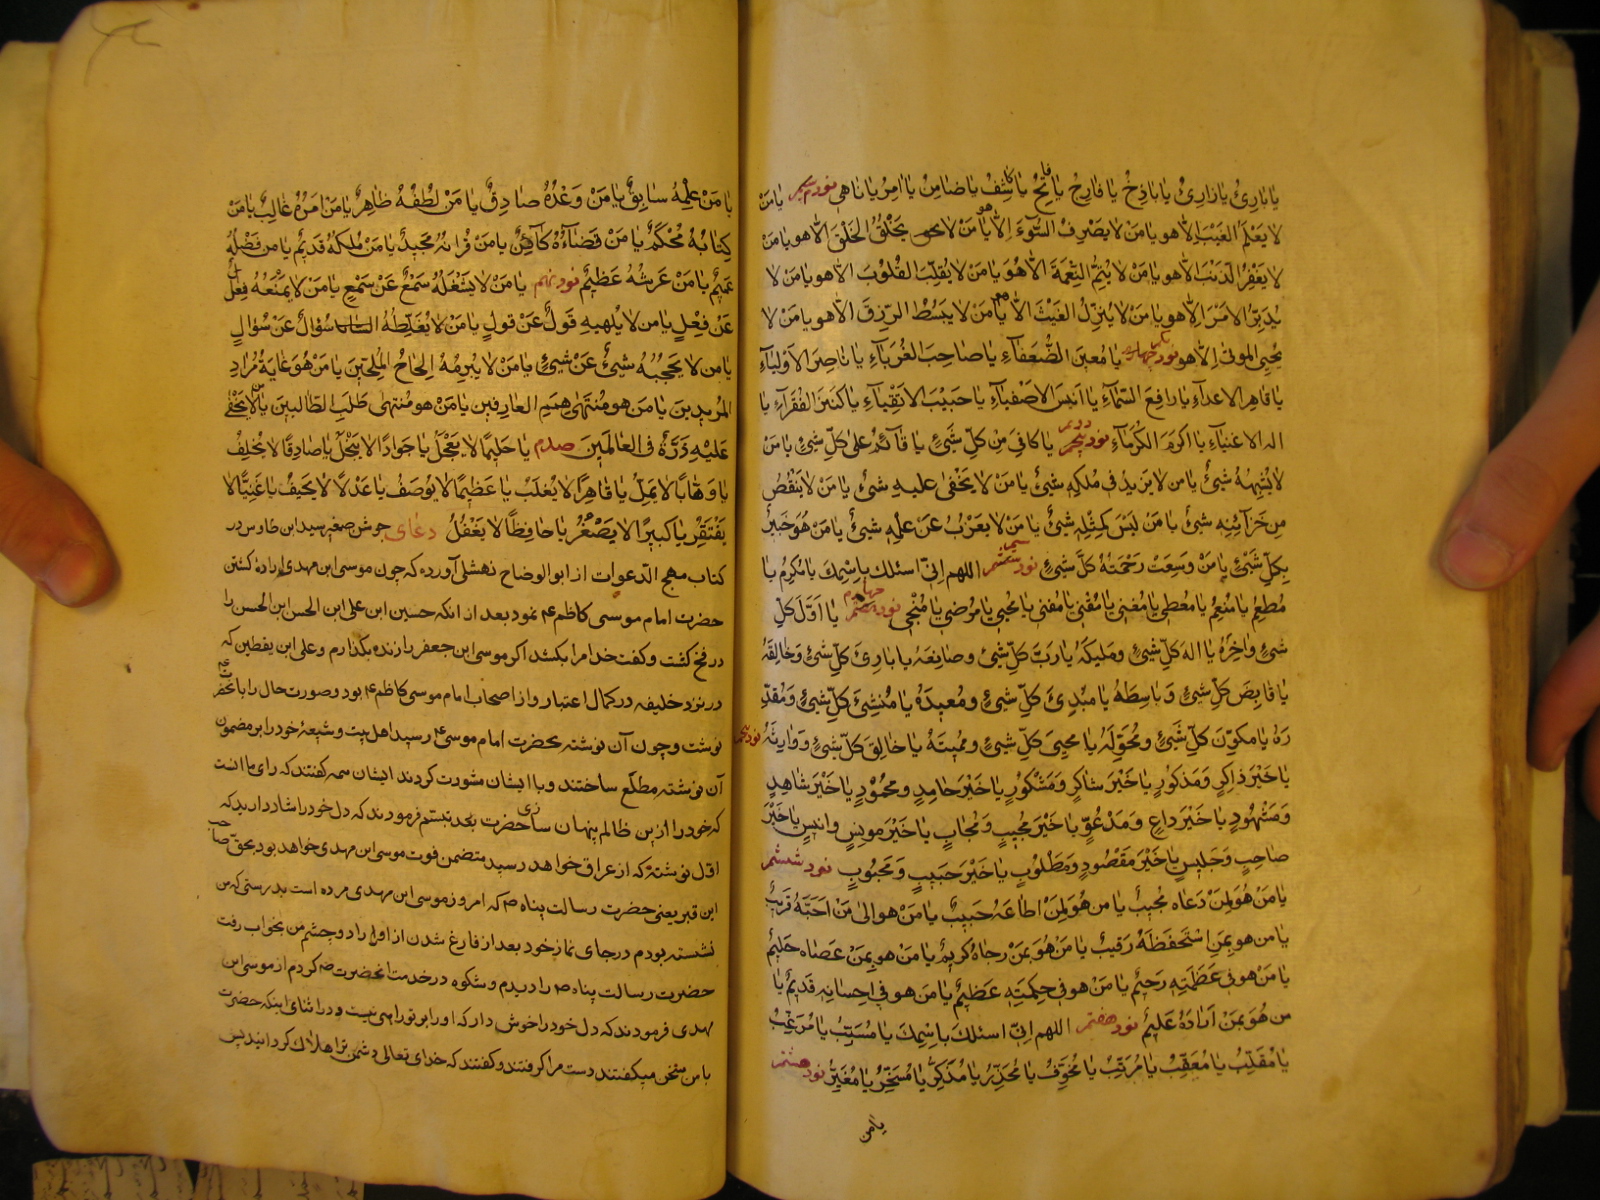 يا بارئ يا زارئ يا باذخ يا فارج يا فاتح يا كاشف يا ضامن يا امر يا ناهي نودم سيم يا من
لا يعلم الغيب الا هو يا من لا يصرف السوء الا هو يا من لا يخلق الخلق الا هو يا من
لا يغفر الذنب الا هو يا من لا يتم النعمة الا هو يا من لا يقلب القلوب الا هو يا من لا
يدبر الامر الا هو يا من لا ينزل الغيث الا هو يا من لا يبسط الرزق الا هو يا من لا
يحيي الموتى الا هو نود چهارم يا معين الضعفاء يا صاحب الغرباء يا ناصر الاولياء
يا قاهر الاعداء يا رافع السماء يا انيس الاصفياء يا حبيب الاتقياء يا كنز الفقراء يا
اله الاغنياء يا اكرم الكرماء نود پنجم يا كافي من كل شيئ يا قائم على كل شيئ يا من
لا يشبهه شيئ يا من لا يزيد في ملكه شيئ يا من لا يخفى عليه شيئ يا من لا ينقص
من خزائنه شيئ يا من ليس كمثله شيئ يا من لا يعزب عن علمه شيئ يا من هو خبير
بكل شيئ يا من وسعت رحمته كل شيئ نود ششم اللهم اني اسئلك باسمك يا مكرم يا
مطعم يا منعم يا معطي يا مغني يا مقني يا مفني يا محيي يا مرضي يا منجي نود هفتم يا اول كل
شيئ واخره يا اله كل شيئ ومليكه يا رب كل شيئ وصانعه يا بارئ كل شيئ وخالقه
يا قابض كل شيئ وباسطه يا مبدئ كل شيئ ومعيده يا منشئ كل شيئ ومقد
ره يا مكون كل شيئ ومحوله يا محيي كل شيئ ومميته يا خالق كل شيئ ووارثه نود پنجم
يا خير ذاكر ومذكور يا خير شاكر ومشكور يا خير حامد ومحمود يا خير شاهد
ومشهود يا خير داع ومدعو يا خير مجيب ومجاب يا خير مونس وانيس يا خير
صاحب وجليس يا خير مقصود ومطلوب يا خير حبيب ومحبوب نود ششم
يا من هو لمن دعاه مجيب يا من هو لمن اطاعه حبيب يا من هو الى من احبه قريب
يا من هو بمن استحفظه رقيب يا من هو بمن رجاه كريم يا من هو بمن عصاه حليم
يا من هو في عظمته رحيم يا من هو في حكمته عظيم يا من هو في احسانه قديم يا
من هو بمن اراده عليم نود هفتم اللهم اني اسئلك باسمك يا مسبب يا مرغب
يا مقلب يا معقب يا مرتب يا مخوف يا محذر يا مذكر يا مسخر يا مغير نود هشتم
يا من
يا من علمه سابق يا من وعده صادق يا من لطفه ظاهر يا من امره غالب يا من
كتابه محكم يا من قضاءه كائن يا من قرانه مجيد يا من ملكه قديم يا من فضله
عميم يا من عرشه عظيم نود نهم يا من لا يشغله سمع عن سمع يا من لا يمنعه فعل
عن فعل يا من لا يلهيه قول عن قول يا من لا يغلطه سؤال عن سؤال
يا من لا يحجبه شيئ عن شيئ يا من لا يبرمه الحاح الملحين يا من هو غاية مراد
المريدين يا من هو منتهى همم العارفين يا من هو منتهى طلب الطالبين يا من لا يخفى
عليه ذرة في العالمين صدم يا حليما لا يعجل يا جوادا لا يبخل يا صادقا لا يخلف
يا وهابا لا يمل يا قاهرا لا يغلب يا عظيما لا يوصف يا عدلا لا يحيف يا غنيا لا
يفتقر يا كبيرا لا يصغر يا حافظا لا يغفل دعاى جوشن صغير سيد ابن طاوس در
كتاب مهج الدعوات از ابو الوضاح نهشلى آورده كه چون موسى ابن مهدى اراده كشتن
حضرت امام موسى كاظم ع نمود بعد از انكه حسين ابن على ابن الحسن ابن الحسن را
در فخ كشت و كفت خدا مرا بكشد اكر موسى ابن جعفر را زنده بكذارم و على ابن يقطين كه
در نزد خليفه در كمال اعتبار و از اصحاب امام موسى كاظم ع بود و صورت حال را بانحضرت
نوشت و چون آن نوشته بحضرت امام موسى ع رسيد اهل بيت و شيعهٔ خود را بر مضمون
آن نوشته مطلع ساختند و با ايشان مشورت كردند ايشان همه كفتند كه راى ما انست
كه خود را از ين ظالم پنهان سازى حضرت بعد تبسم فرمودند كه دل خود را شاد داريد كه
اول نوشته كه از عراق خواهد رسيد متضمن فوت موسى ابن مهدى خواهد بود بحق صاحب
اين قبر يعنى حضرت رسالت پناه ص كه امروز موسى ابن مهدى مرده است بدرستى كه من
نشسته بودم در جاى نماز خود بعد از فارغ شدن از اوراد و چشم من بخواب رفت
حضرت رسالت پناه ص را ديدم و شكوه در خدمت انحضرت ص كردم از موسى ابن
مهدى فرمودند كه دل خود را خوش دار كه او را بر تو راهى نيست و در اثناى اينكه حضرت
با من سخن ميكفتند دست مرا كرفتند و كفتند كه خداى تعالى دشمن ترا هلاك كردانيد پس